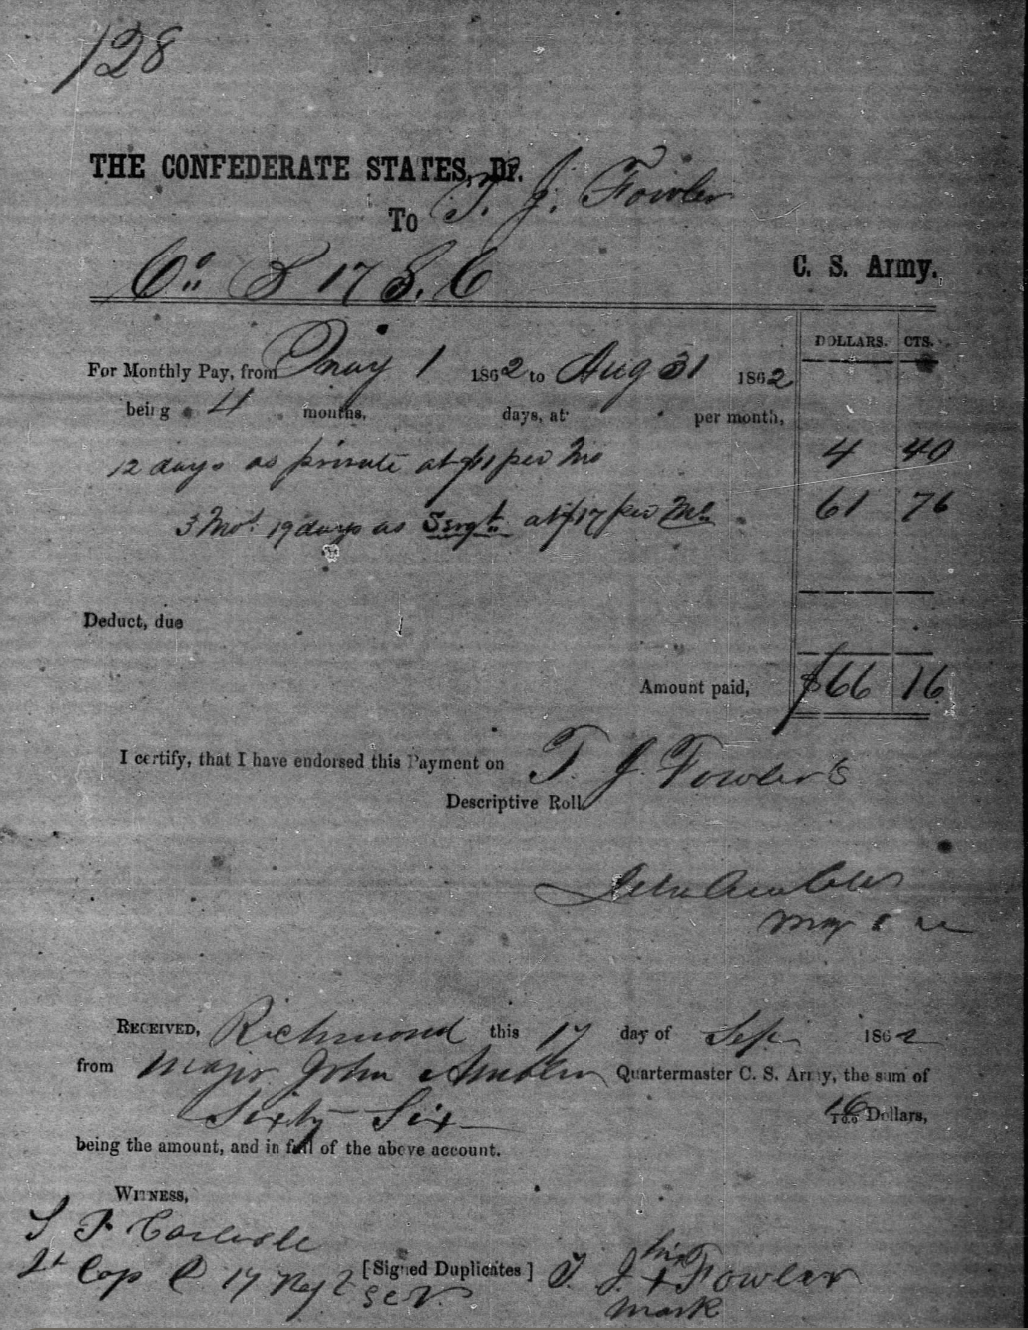 128
THE CONFEDERATE STATES, Dr.
To T. J. Fowler
Co. 17 S. C
C. S. Army.
DOLLARS. CTS.
For Monthly Pay, from May 1 1862 to Aug 31 1862
being 4 months, days, at per month,
12 days as private at $11 per Mo 4 40
3 Mos. 19 days as Sergt. at $17 per Mo 61 76
Deduct, due
Amount paid, $66 16
I certify, that I have endorsed this Payment on T. J. Fowler's
Descriptive Roll
John Ambler
Maj
RECEIVED, Richmond this 17 day of Sep 1862
from Major John Ambler Quartermaster C. S. Army, the sum of
Sixty Six 16/100 Dollars,
being the amount, and in full of the above account.
WITNESS,
Carlisle
his
Co 17 Regt [Signed Duplicates] T. J. + Fowler
S C V. mark